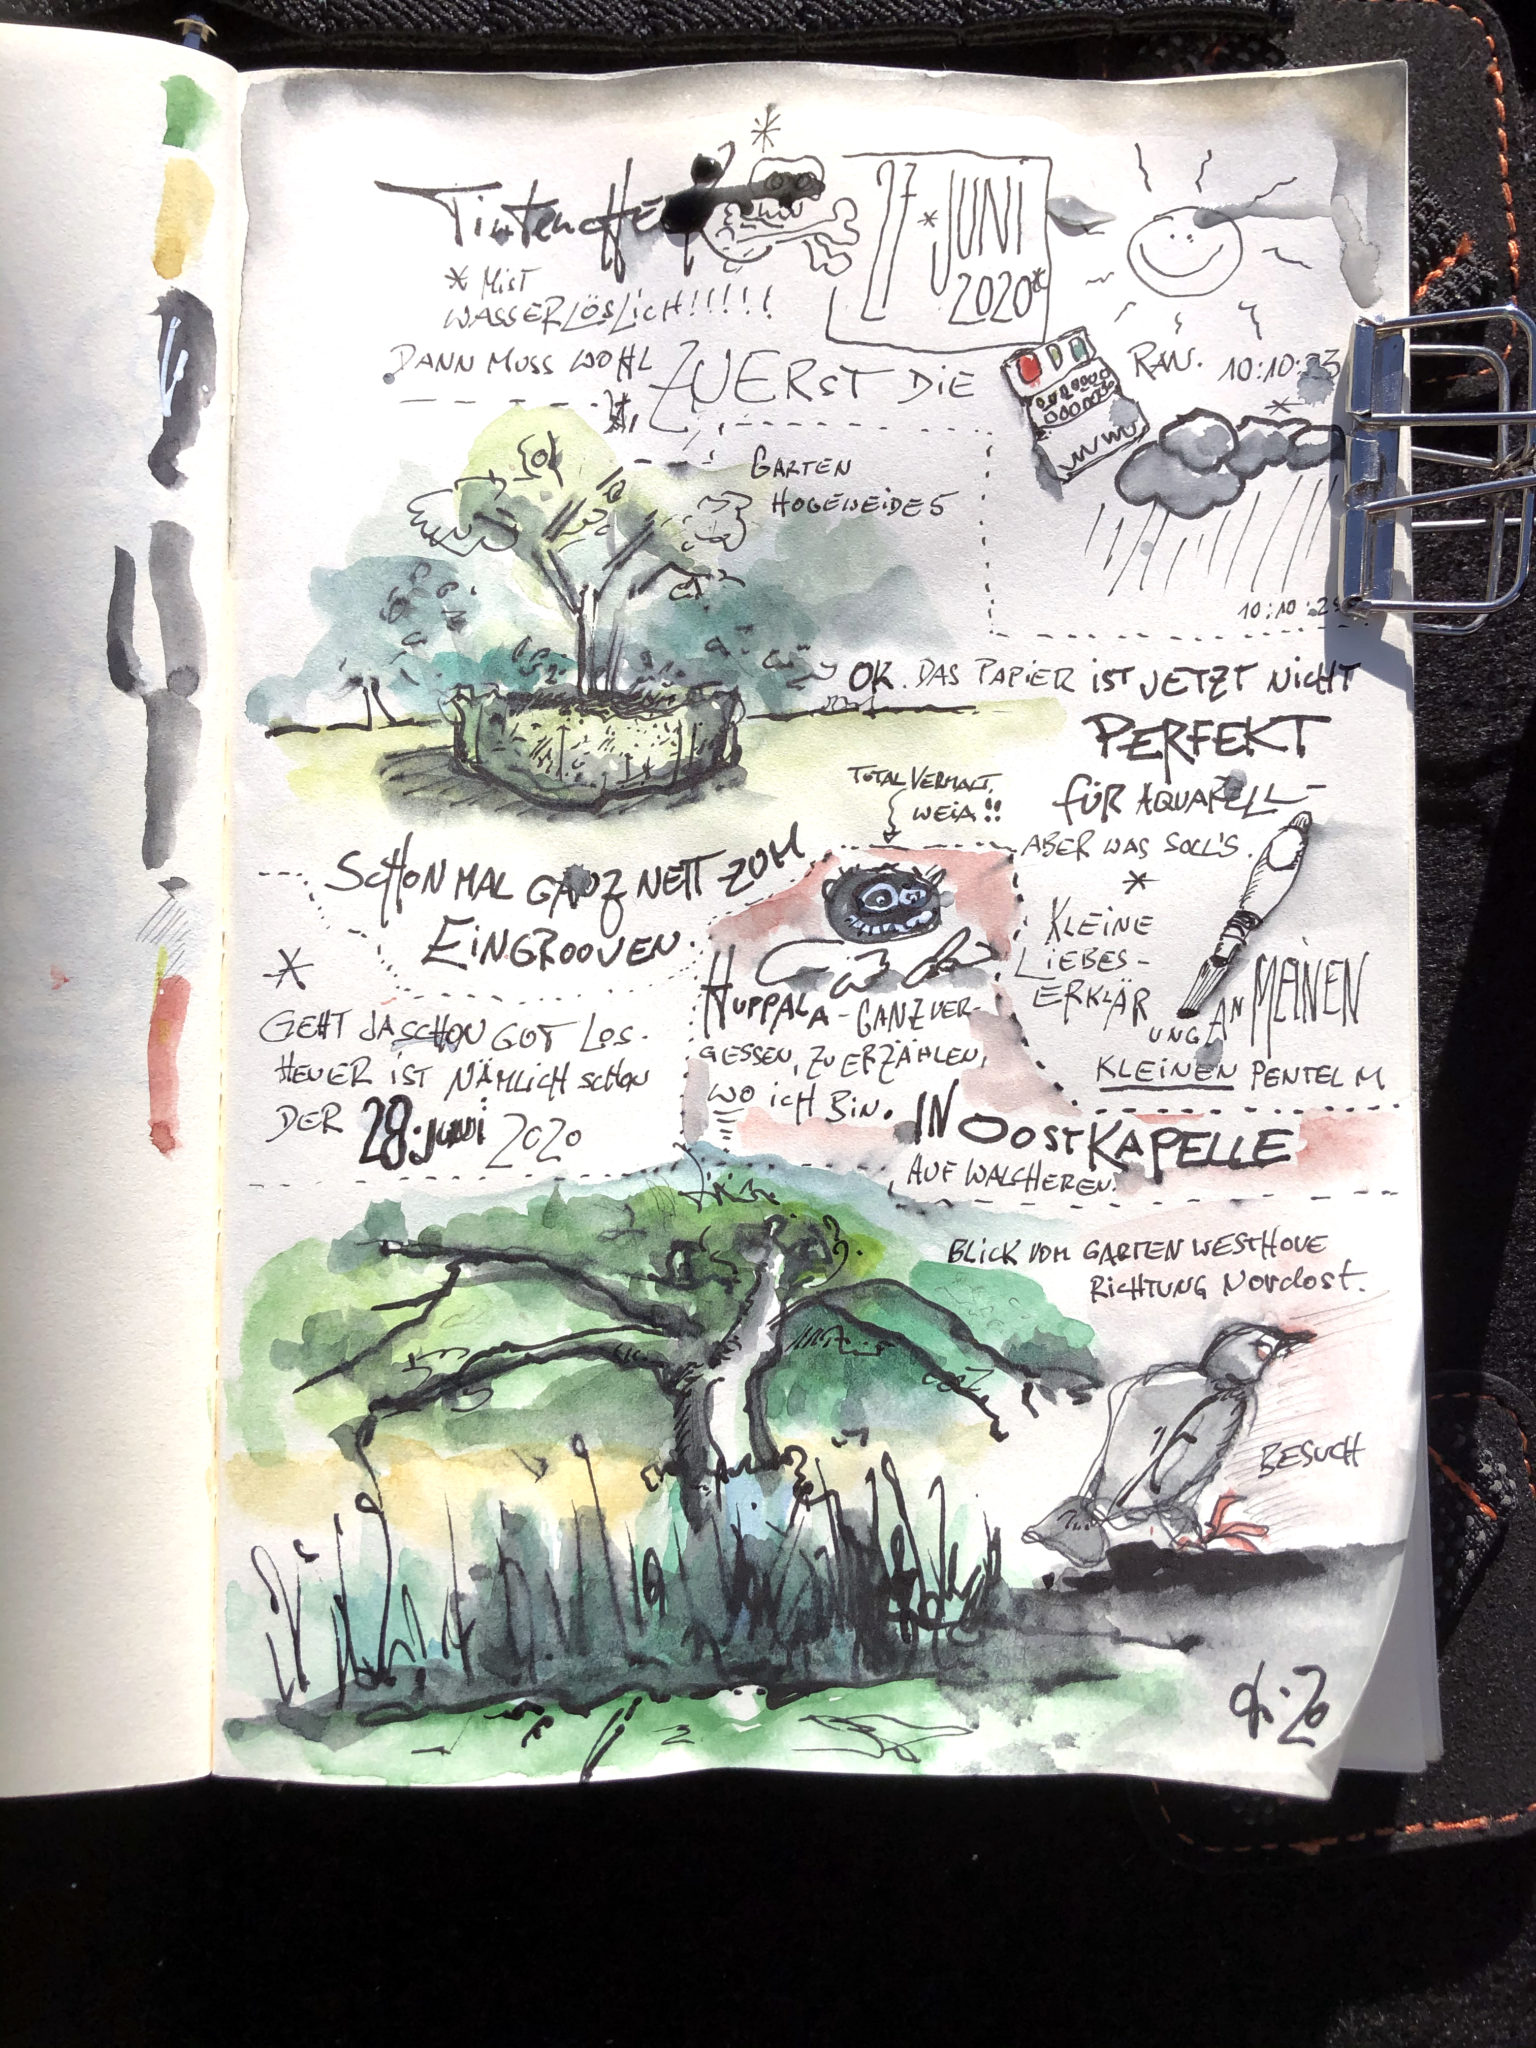 27 * JUNI
2020*
* MIST
WASSERLÖSLICH!!!!!!
DANN MUSS WOHL
ZUERST DIE
RAN.
10:10:23
GARTEN
HOGEWEIDE 5
*
OK. DAS PAPIER IST JETZT NICHT
PERFEKT
FÜR AQUARELL-
ABER WAS SOLL'S.
TOTAL VERMALT.
WEIA!!
SCHON MAL GANZ NETT ZUM
EINGROOVEN.
*
GEHT JA SCHON GUT LOS.
HEUER IST NÄMLICH SCHON
DER 28. JUNI 2020
HUPPALA - GANZ VER-
GESSEN, ZU ERZÄHLEN,
WO ICH BIN.
IN OOSTKAPELLE
AUF WALCHEREN.
*
KLEINE
LIEBES-
ERKLÄR
UNG AN MEINEN
KLEINEN PENTEL M
BLICK VOM GARTEN WESTHOVE
RICHTUNG Nordost.
BESUCH